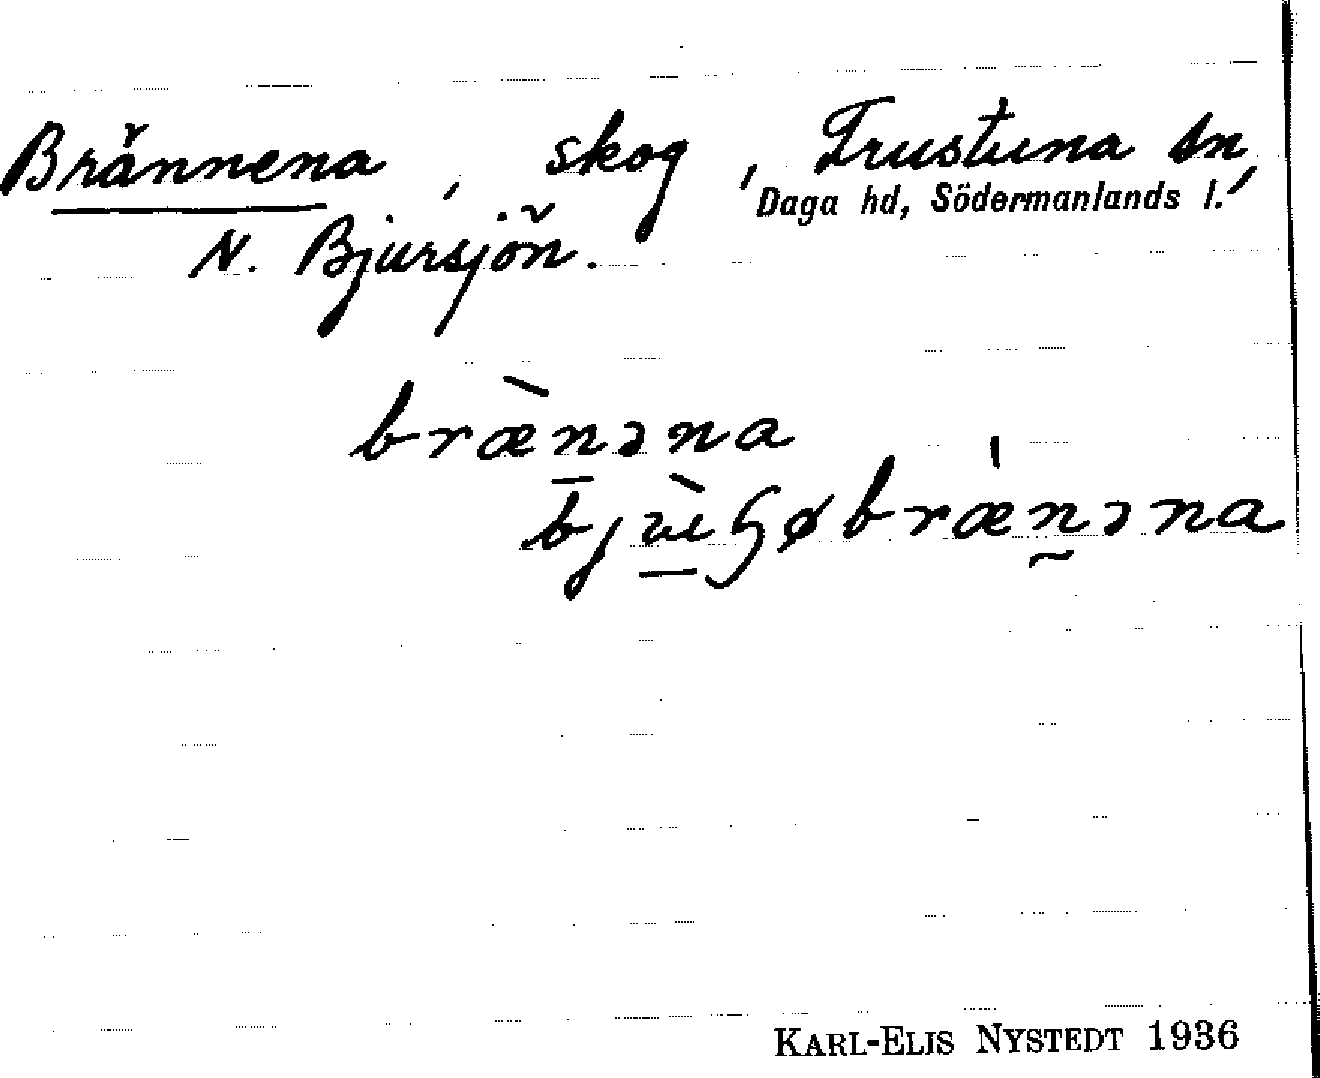 Brännena, skog, Frustuna sn,
Daga hd, Södermanlands l.
N. Bjursjön.
bræ̀nəna
KARL-ELIS NYSTEDT 1936